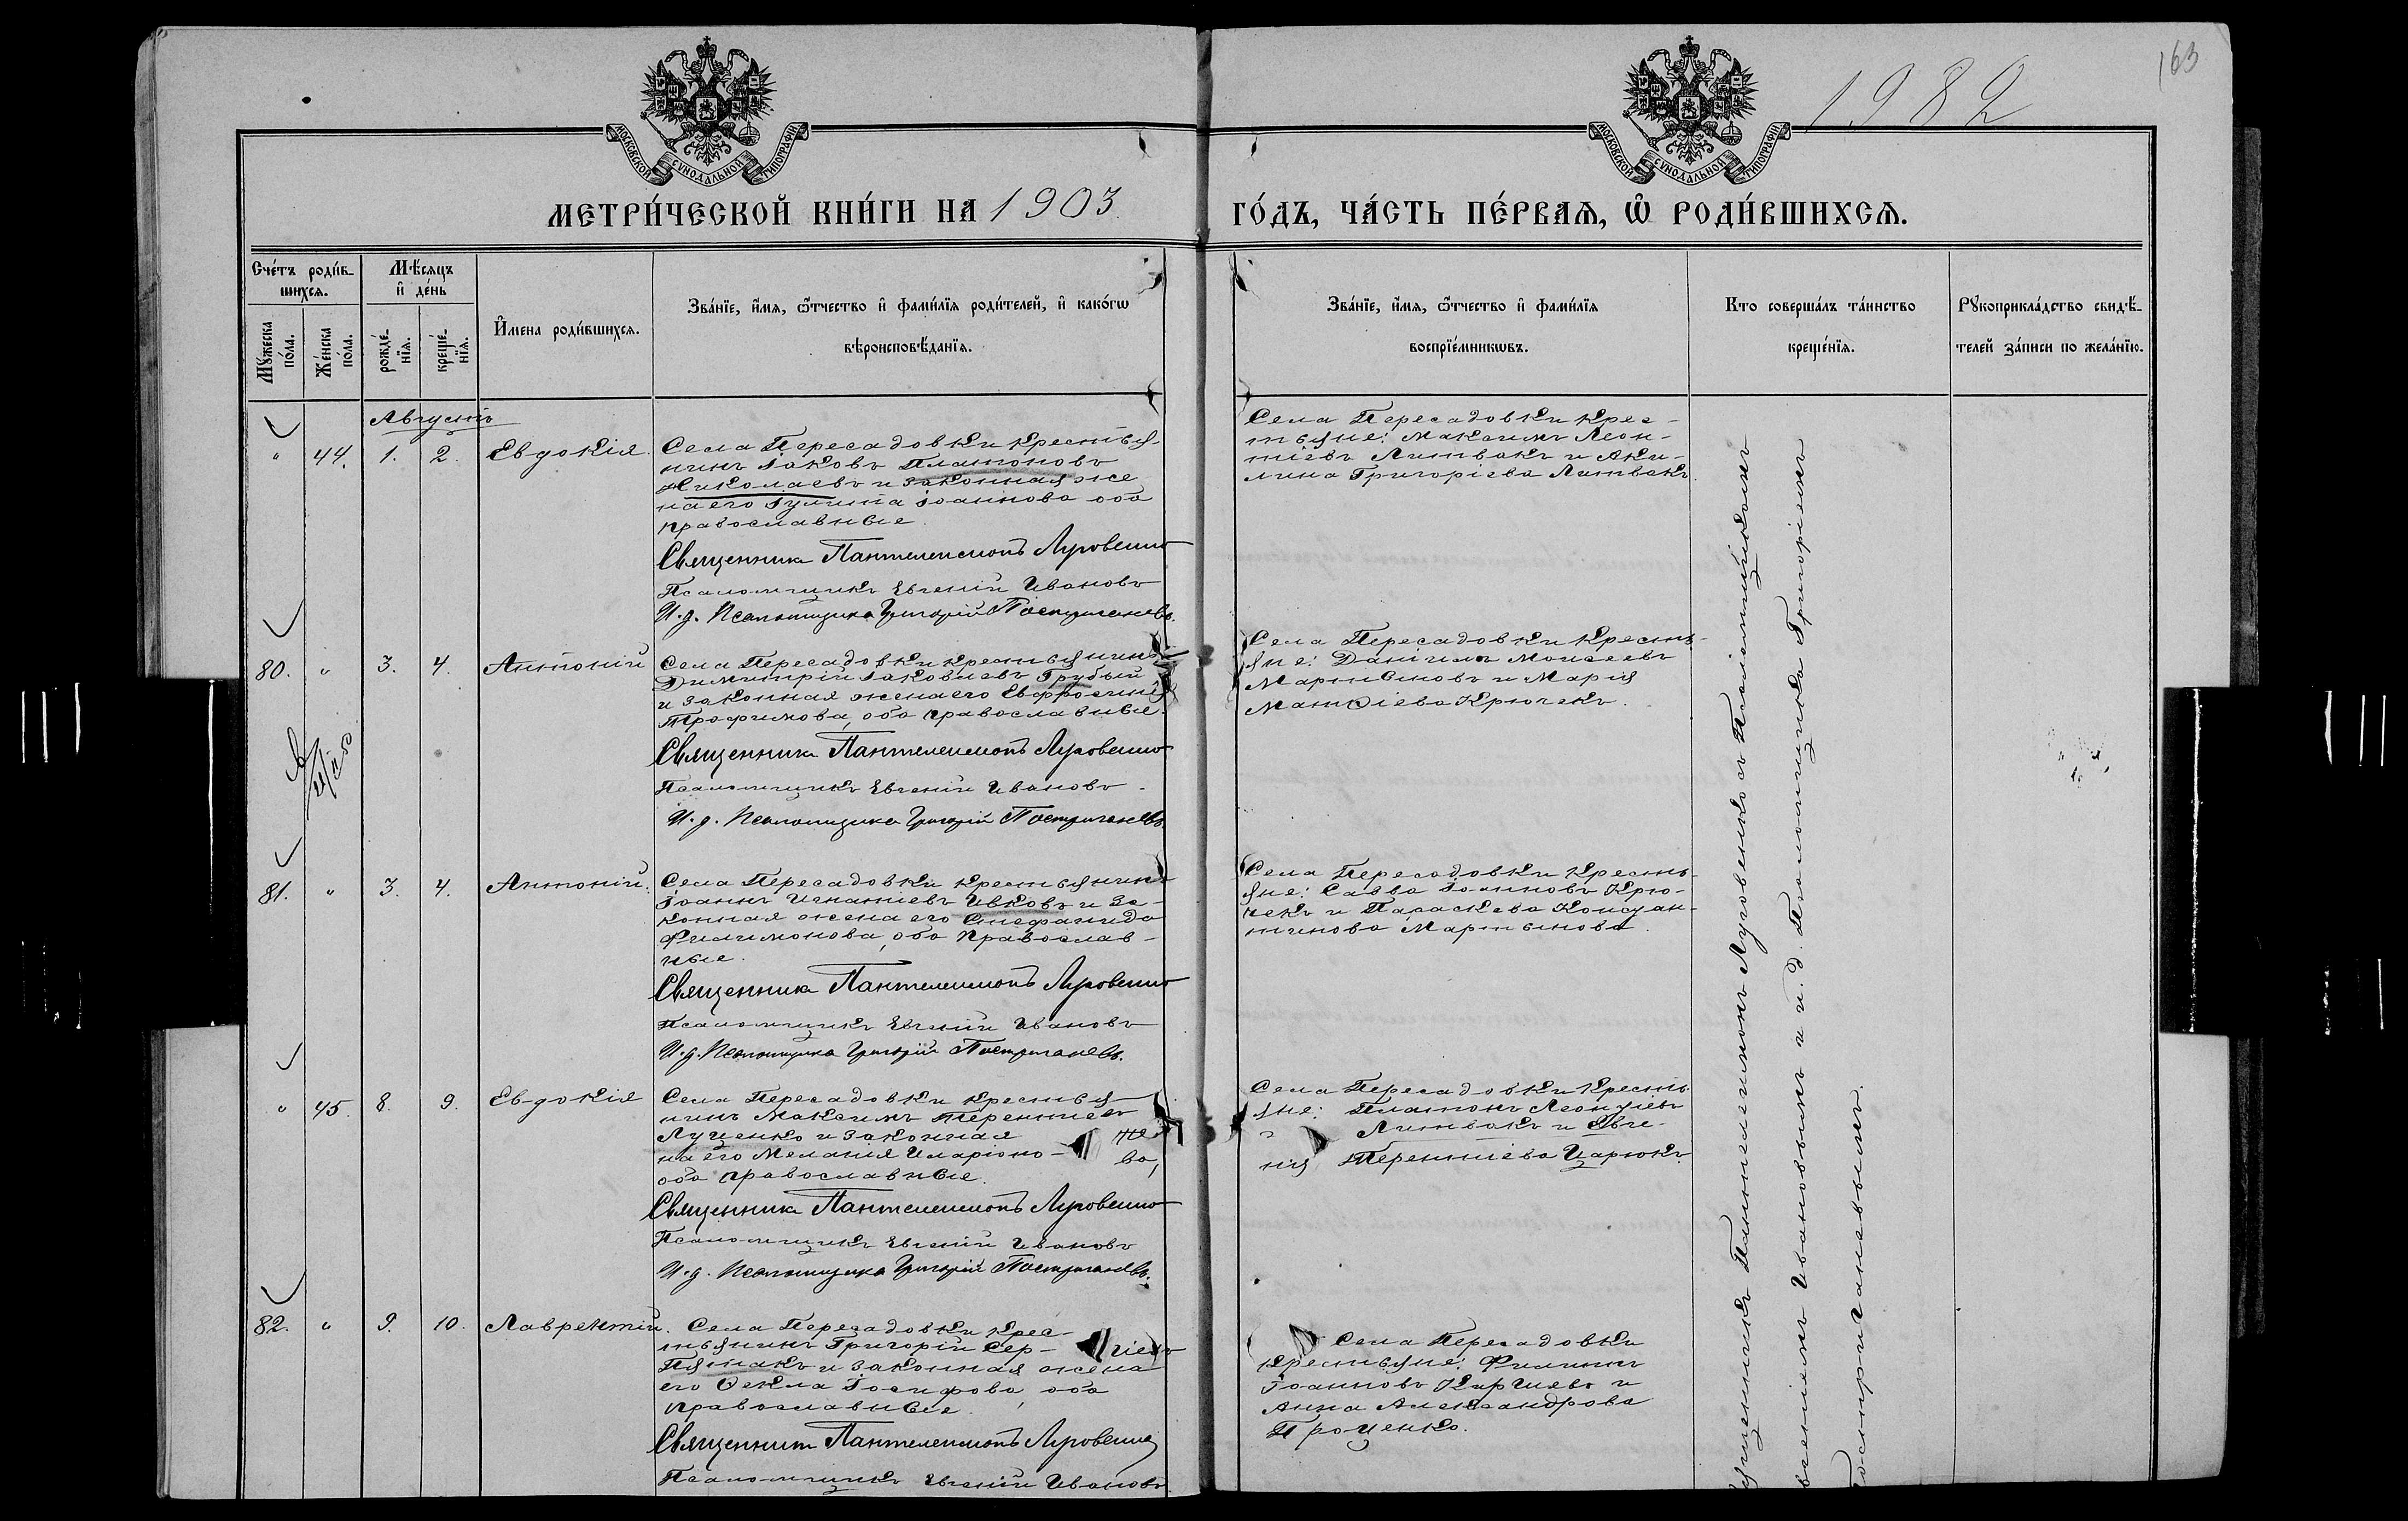 163
1982
МОСКОВСКОЙ СѴНОДАЛЬНОЙ ТИПОГРАФІИ
МОСКОВСКОЙ СѴНОДАЛЬНОЙ ТИПОГРАФІИ
МЕТРИ́ЧЕСКОЙ КНИ́ГИ НА 1903
ГО́ДЪ, ЧА́СТЬ ПЕ́РВАЯ, Ѽ РОДИ́ВШИХСЯ.
Сче́тъ роди́в-
шихся.
Мѣ́сяцъ
и҆ де́нь
Мꙋ́жеска по́ла.
Же́нска по́ла.
рожде́-
нїя.
креще́-
нїя.
И҆мена роди́вшихся.
Зва́нїе, и҆́мя, ѻ҆́тчество и҆ фами́лїя роди́телей, и҆ како́гѡ
вѣроисповѣ́данїя.
Зва́нїе, и҆́мя, ѻ҆́тчество и҆ фами́лїя
воспрїе́мникѡвъ.
Кто совершáлъ тáинство
креще́нїя.
Рꙋкоприклáдство свидѣ́-
телей зáписи по желáнїю.
Августъ
" 44. 1. 2. Евдокія.
Села Пересадовки крестья-
нинъ Іаковъ Платоновъ
Николаевъ и законная же
на его Іулита Іоаннова оба
православные.
Священникъ Пантелеимонъ Луговенко
Псаломщикъ Евгеній Ивановъ
И. д. Псаломщика Григорій Постригачевъ.
Села Пересадовки крес-
тьяне: Максимъ Леон-
тіевъ Литвакъ и Аки-
лина Григоріева Литвакъ.
80. " 3. 4. Антоній
Села Пересадовки крестьянинъ
Димитрій Іаковлевъ Грубый
и законная жена его Евфросинія
Трофимова, оба православные.
Священникъ Пантелеимонъ Луговенко
Псаломщикъ Евгеній Ивановъ.
И. д. Псаломщика Григорій Постригачевъ.
Села Пересадовки кресть-
яне: Даніилъ Моисеевъ
Мартыновъ и Марія
Матѳіева Крючекъ.
81. " 3. 4. Антоній.
Села Пересадовки крестьянинъ
Іоаннъ Игнатіевъ Ивковъ и за-
конная жена его Стефанида
Филимонова, оба православ-
ные.
Священникъ Пантелеимонъ Луговенко
Псаломщикъ Евгеній Ивановъ
И. д. Псаломщика Григорій Постригачевъ.
Села Пересадовки кресть-
яне: Савва Іоанновъ Крю-
чекъ и Параскева Констан-
тинова Мартынова.
" 45. 8. 9. Евдокія
Села Пересадовки крестья-
нинъ Максимъ Терентіевъ
Луценко и законная же
на его Меланія Иларіоно- ва,
оба православные.
Священникъ Пантелеимонъ Луговенко
Псаломщикъ Евгеній Ивановъ
И. д. Псаломщика Григорій Постригачевъ.
Села Пересадовки кресть-
яне: Платонъ Леонтіевъ
Литвакъ и Евге-
нія Терентіева Царюкъ.
82. " 9. 10. Лаврентій.
Села Пересадовки крес-
тьянинъ Григорій Сер- гіевъ
Пятакъ и законная жена
его Ѳекла Іосифова, оба
православные.
Священникъ Пантелеимонъ Луговенко
Псаломщикъ Евгеній Ивановъ
Села Пересадовки
крестьяне: Филиппъ
Іоанновъ Киричевъ и
Анна Александрова
Проценко.
Священникъ Пантелеимонъ Луговенко съ Псаломщикомъ
Евгеніемъ Ивановымъ и и. д. Псаломщика Григоріемъ
Постригачевымъ.